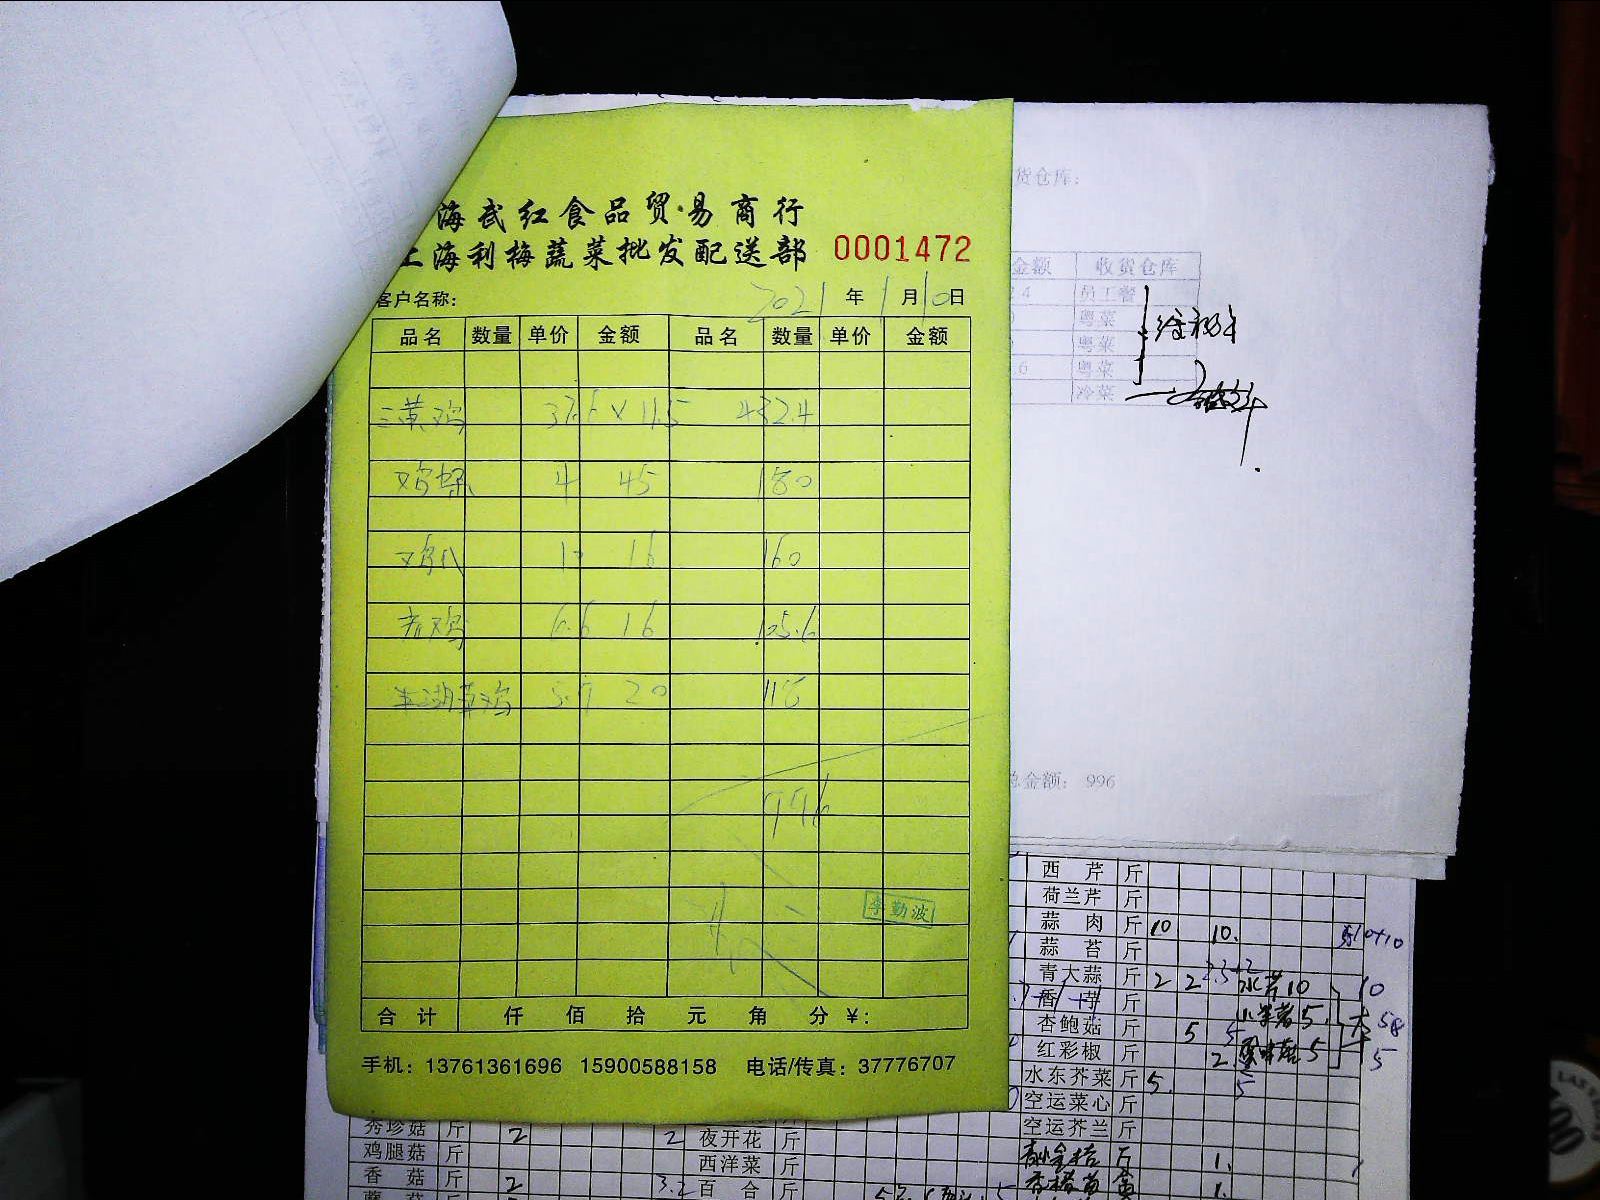 海武红食品贸易商行
上海利梅蔬菜批发配送部 0001472
客户名称: 2021 年 1 月 10 日
品名 数量 单价 金额 品名 数量 单价 金额
三黄鸡 37.6 × 11.5 432.4
4 45 180
10 16 160
老鸡 6.6 16 105.6
草鸡 5.9 20 118
996
李勤波
合计 仟 佰 拾 元 角 分 ¥:
手机: 13761361696 15900588158 电话/传真: 37776707
货仓库:
金额 收货仓库
员工餐
粤菜
粤菜
6 粤菜
冷菜
总金额: 996
西芹 斤
荷兰芹 斤
蒜肉 斤 10 10.
蒜苔 斤
青大蒜 斤 2 2 水芹10 10
香芋 斤 5
杏鲍菇 斤 5 5 58
红彩椒 斤 2 5 5
水东芥菜 斤 5. 5
空运菜心 斤
空运芥兰 斤
斤 1.
1.
秀珍菇 斤 2 2 夜开花 斤
鸡腿菇 斤 西洋菜 斤
香菇 斤 2 3.2 百合 斤